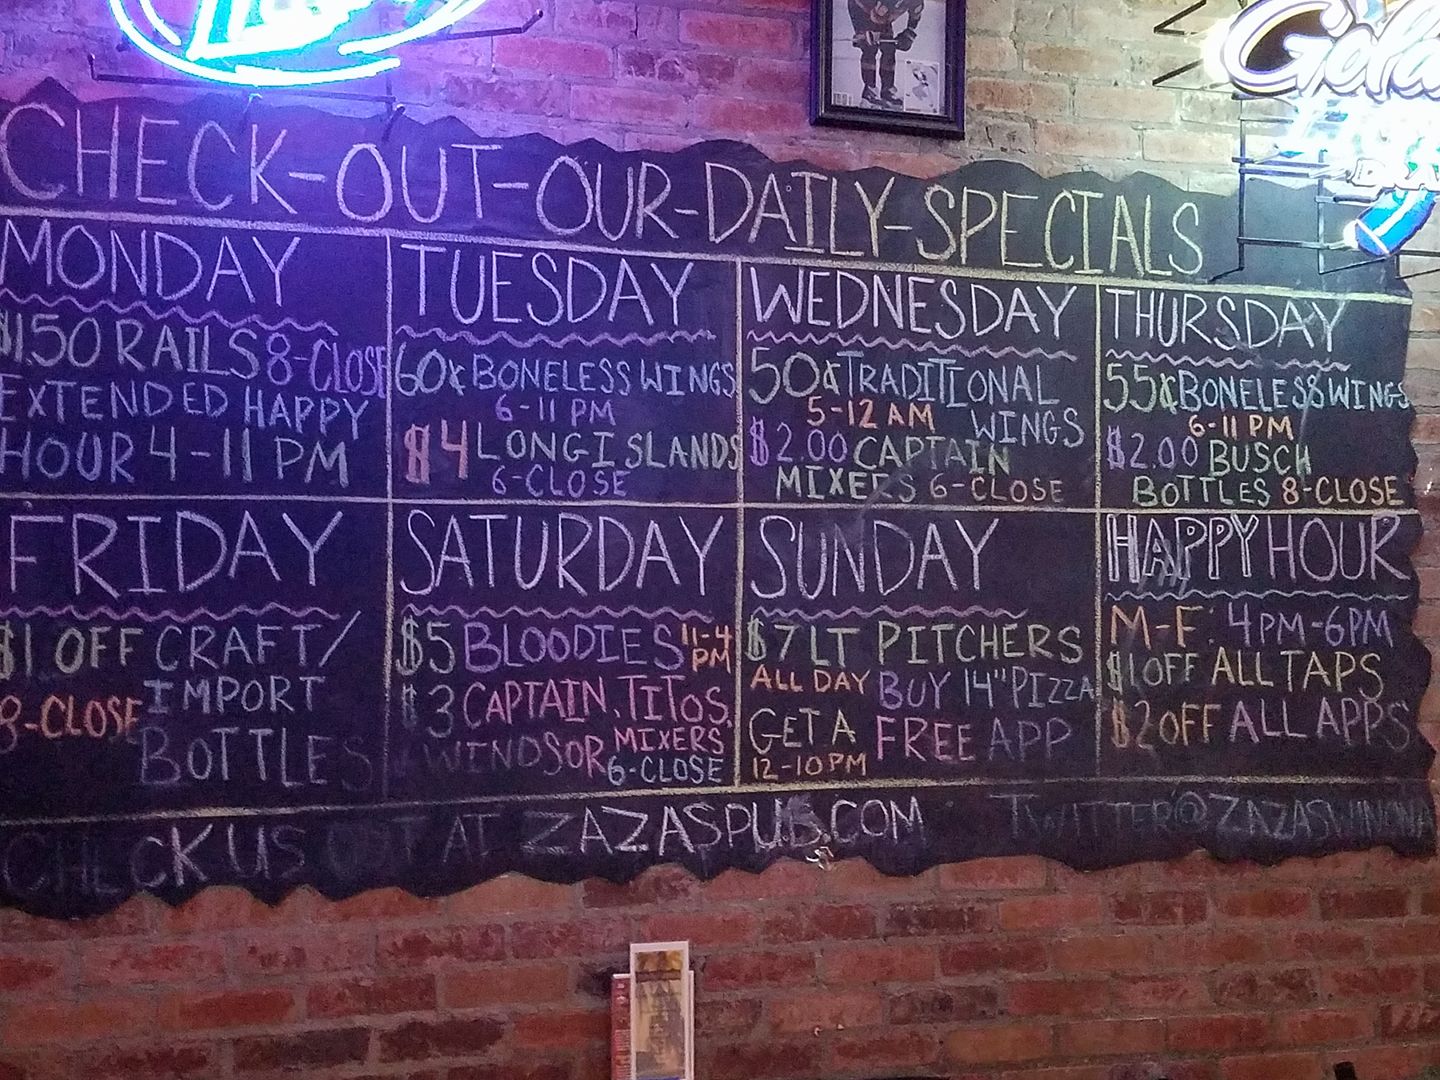 Lite
Golden
CHECK-OUT-OUR-DAILY-SPECIALS
MONDAY
$1.50 RAILS 8-CLOSE
EXTENDED HAPPY
HOUR 4-11 PM
TUESDAY
60¢ BONELESS WINGS
6-11 PM
$4 LONG ISLANDS
6-CLOSE
WEDNESDAY
50¢ TRADITIONAL
5-12 AM WINGS
$2.00 CAPTAIN
MIXERS 6-CLOSE
THURSDAY
55¢ BONELESS WINGS
6-11 PM
$2.00 BUSCH
BOTTLES 8-CLOSE
FRIDAY
$1 OFF CRAFT/
8-CLOSE IMPORT
BOTTLES
SATURDAY
$5 BLOODIES 11-4 PM
$3 CAPTAIN, TITOS,
WINDSOR MIXERS
6-CLOSE
SUNDAY
$7 LT PITCHERS
ALL DAY BUY 14" PIZZA
GET A FREE APP
12-10PM
HAPPY HOUR
M-F: 4PM-6PM
$1 OFF ALL TAPS
$2 OFF ALL APPS
CHECK US OUT AT ZAZASPUB.COM TWITTER@ZAZASWINONA